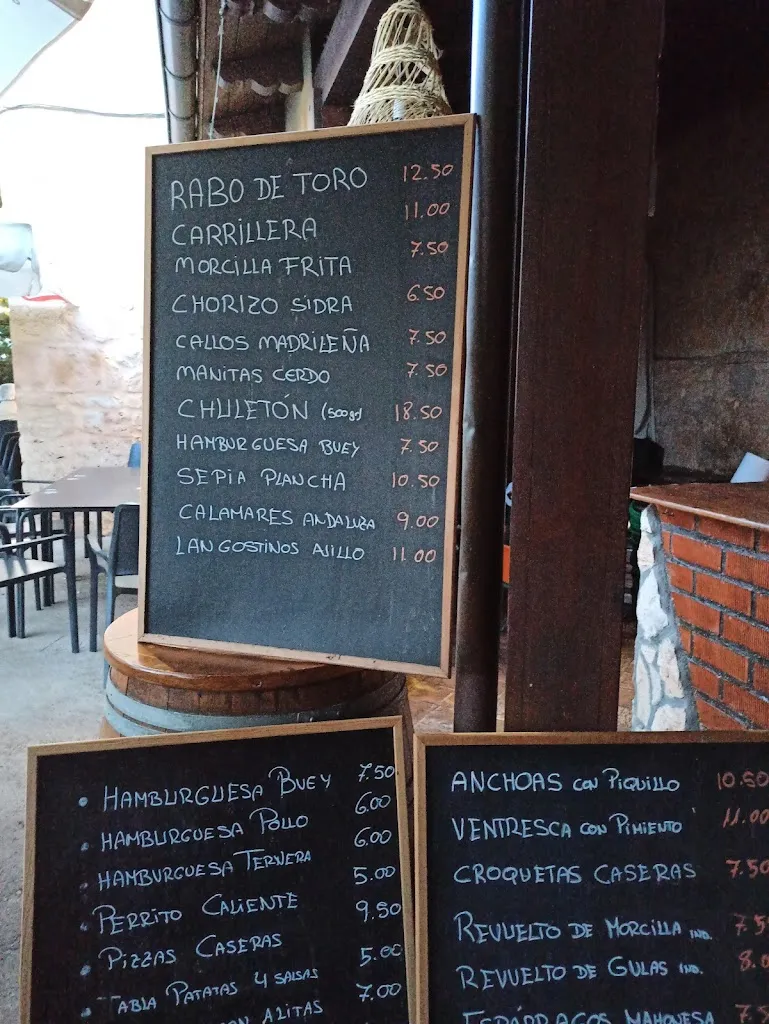 RABO DE TORO 12.50
CARRILLERA 11.00
MORCILLA FRITA 7.50
CHORIZO SIDRA 6.50
CALLOS MADRILEÑA 7.50
MANITAS CERDO 7.50
CHULETÓN (500gr) 18.50
HAMBURGUESA BUEY 7.50
SEPIA PLANCHA 10.50
CALAMARES ANDALUZA 9.00
LANGOSTINOS AJILLO 11.00
• HAMBURGUESA BUEY 7.50
• HAMBURGUESA POLLO 6.00
• HAMBURGUESA TERNERA 6.00
• PERRITO CALIENTE 5.00
• PIZZAS CASERAS 9.50
• TABLA PATATAS 4 SALSAS 5.00
ALITAS 7.00
ANCHOAS CON PIQUILLO 10.50
VENTRESCA CON PIMIENTO 11.00
CROQUETAS CASERAS 7.50
REVUELTO DE MORCILLA IND. 7.5
REVUELTO DE GULAS IND. 8.0
ESPÁRRAGOS MAHONESA 7.5